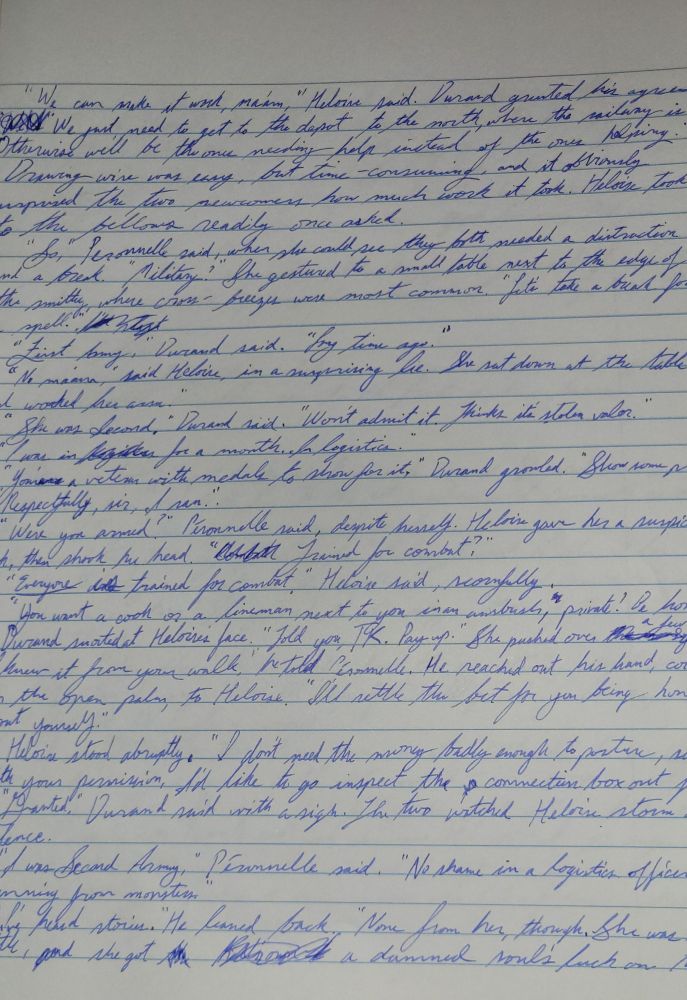 "We can make it work, ma'am," Heloise said. Durand grunted his agreem
"We just need to get to the depot to the north, where the railway is
Otherwise we'll be the one needing help instead of the ones helping."
Drawing wire was easy, but time-consuming, and it obviously
surprised the two newcomers how much work it took. Heloise took
to the bellows readily once asked.
"So," Péronnelle said, when she could see they both needed a distraction
nd a break. "Military?" She gestured to a small table next to the edge of
the smithy, where cross-breezes were most common. "Let's take a break for
spell."
"First Army," Durand said. "Long time ago."
"No ma'am," said Heloise, in a surprising lie. She sat down at the table
d worked her arm.
"She was Second," Durand said. "Won't admit it. Thinks it's stolen valor."
"I was in for a month. In logistics."
"You're a veteran with medals to show for it," Durand growled. "Show some p
"Respectfully, sir, I ran."
"Were you armed?" Péronnelle said, despite herself. Heloise gave her a suspic
k, then shook her head. "Trained for combat?"
"Everyone is trained for combat," Heloise said, scornfully.
"You want a cook or a lineman next to you in an ambush, private? Be hon
Durand snorted at Heloise's face. "Told you, TK. Pay up." She pushed over a few
knew it from your walk," he told Péronnelle. He reached out his hand, co
n the open palm, to Heloise. "I'll settle the bet for you being hon
out yourself."
Heloise stood abruptly. "I don't need the money badly enough to posture, s
th your permission, I'd like to go inspect the connection box out
"Granted," Durand said with a sigh. The two watched Heloise storm
lence.
"I was Second Army," Péronnelle said. "No shame in a logistics officer
unning from monsters."
heard stories." He leaned back. "None from her, though. She was
and she got a damned soul's luck on